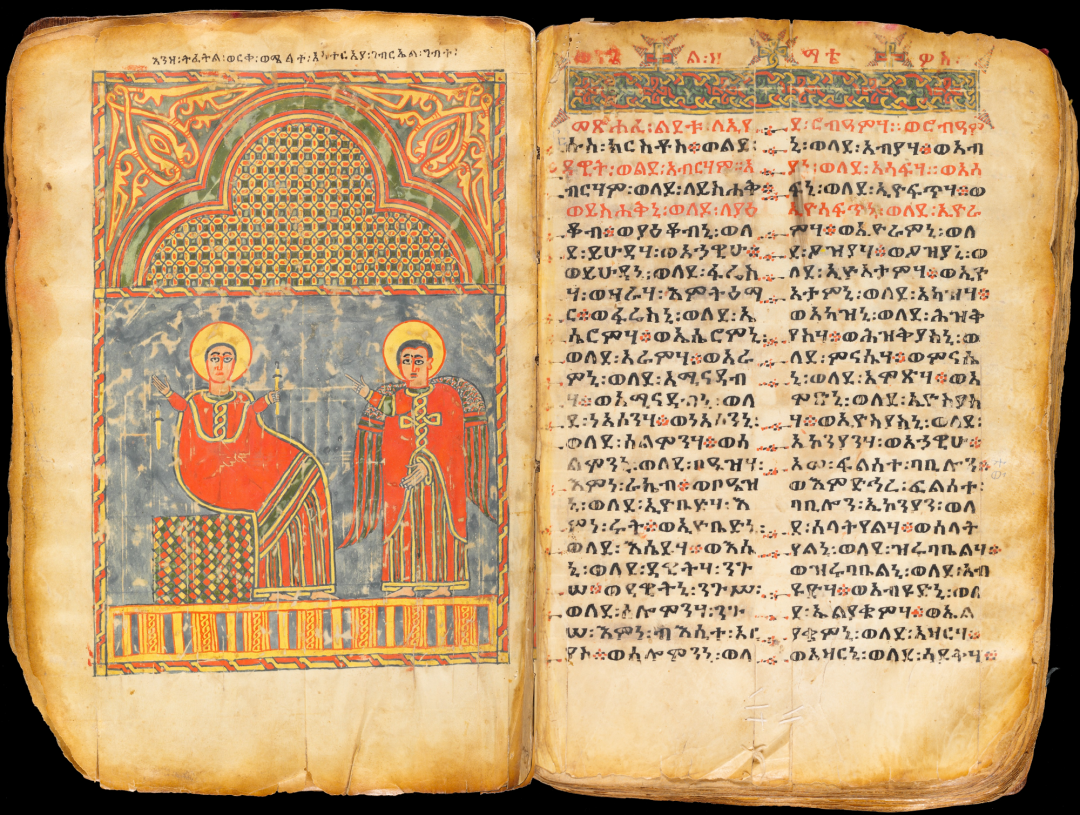 እንዘ፡ትፈትል፡ወርቀ፡ወሜላተ፡ገብርኤል፡ግብተ፡
ወንጌ ል፡ዘ ማቴ ዎስ፡
መጽሐፈ፡ልደቱ፡ለኢየ
ሱስ፡ክርስቶስ፡ወልደ፡
ዳዊት፡ወልደ፡አብርሃም፡አ
ብርሃም፡ወለደ፡ለይስሐቅ፨
ወይስሐቅኒ፡ወለደ፡ለያዕ
ቆብ፡ወያዕቆብኒ፡ወለ
ደ፡ይሁዳሃ፡ወአኀዊሁ፨
ወይሁዳኒ፡ወለደ፡ፋሬስ
ሃ፡ወዛራሃ፡እምትዕማ
ር፨ወፋሬስኒ፡ወለደ፡ኤ
ሴሮምሃ፨ወኤሴሮምኒ፡
ወለደ፡አራምሃ፨ወአራ
ምኒ፡ወለደ፡አሚናዳብ
ሃ፨ወአሚናዳብኒ፡ወለ
ደ፡ነአሶንሃ፨ወነአሶንኒ፡
ወለደ፡ሰልሞንሃ፨ወሰ
ልሞንኒ፡ወለደ፡ቦዔዝሃ፡
እምነ፡ራኬብ፨ወቦዔዝ
ኒ፡ወለደ፡ኢዮቤድሃ፡እ
ምነ፡ሩት፨ወኢዮቤድኒ፡
ወለደ፡እሴይሃ፨ወእሴ
ይኒ፡ወለደ፡ዳዊትሃ፡ንጉ
ሠ፨ወዳዊትኒ፡ንጉሥ፡
ወለደ፡ሰሎሞንሃ፡ንጉ
ሠ፡እምነ፡ብእሲተ፡ኦር
ዮ፨ወሰሎሞንኒ፡ወለ
ደ፡ሮብዓምሃ፨ወሮብዓም
ኒ፡ወለደ፡አብያሃ፨ወአብ
ያኒ፡ወለደ፡አሳፍሃ፨ወአሳ
ፍኒ፡ወለደ፡ኢዮሳፍጥሃ፨ወ
ኢዮሳፍጥኒ፡ወለደ፡ኢዮራ
ምሃ፨ወኢዮራምኒ፡ወለ
ደ፡ዖዝያሃ፨ወዖዝያኒ፡ወ
ለደ፡ኢዮአታምሃ፨ወኢዮ
አታምኒ፡ወለደ፡አካዝሃ፨
ወአካዝኒ፡ወለደ፡ሕዝቅ
ያስሃ፨ወሕዝቅያስኒ፡ወ
ለደ፡ምናሴሃ፨ወምናሴ
ኒ፡ወለደ፡አሞጽሃ፨ወአ
ሞጽኒ፡ወለደ፡ኢዮስያስ
ሃ፨ወኢዮስያስኒ፡ወለደ፡
ኢኮንያንሃ፨ወአኀዊሁ፡
አመ፡ፍልሰተ፡ባቢሎን፨
ወእምድኅረ፡ፍልሰተ፡
ባቢሎን፡ኢኮንያን፡ወለ
ደ፡ሰላትያልሃ፨ወሰላት
ያልኒ፡ወለደ፡ዘሩባቤልሃ፨
ወዘሩባቤልኒ፡ወለደ፡አብ
ዩድሃ፨ወአብዩድኒ፡ወለ
ደ፡ኤልያቄምሃ፨ወኤል
ያቄምኒ፡ወለደ፡አዛርሃ፨
ወአዛርኒ፡ወለደ፡ሳዶቅሃ፨